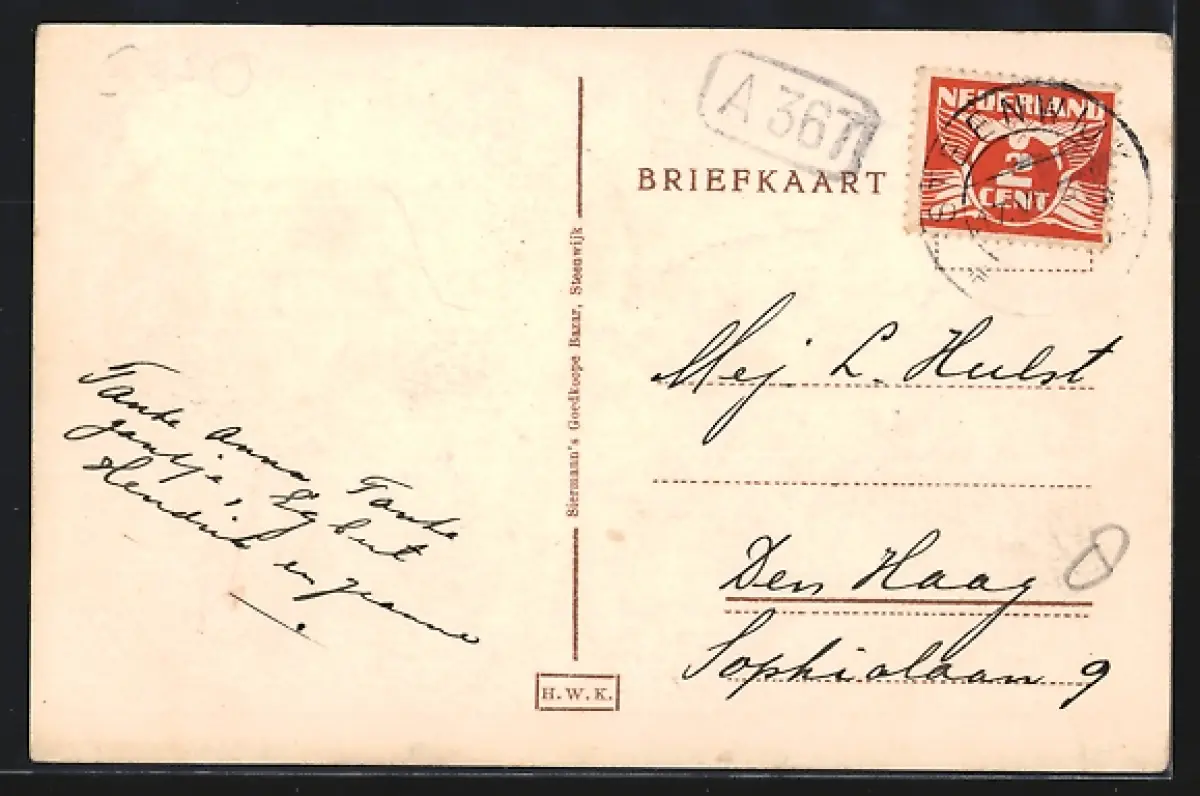 A 367
BRIEFKAART
NEDERLAND
1½
CENT
STEENWIJK
Biermann's Goedkoope Bazar, Steenwijk
Mej. L. Hulst
Den Haag
Sophialaan 9
Tante Anna, Tante
gantje, Egbert
Hendrik en Jeanne
H. W. K.